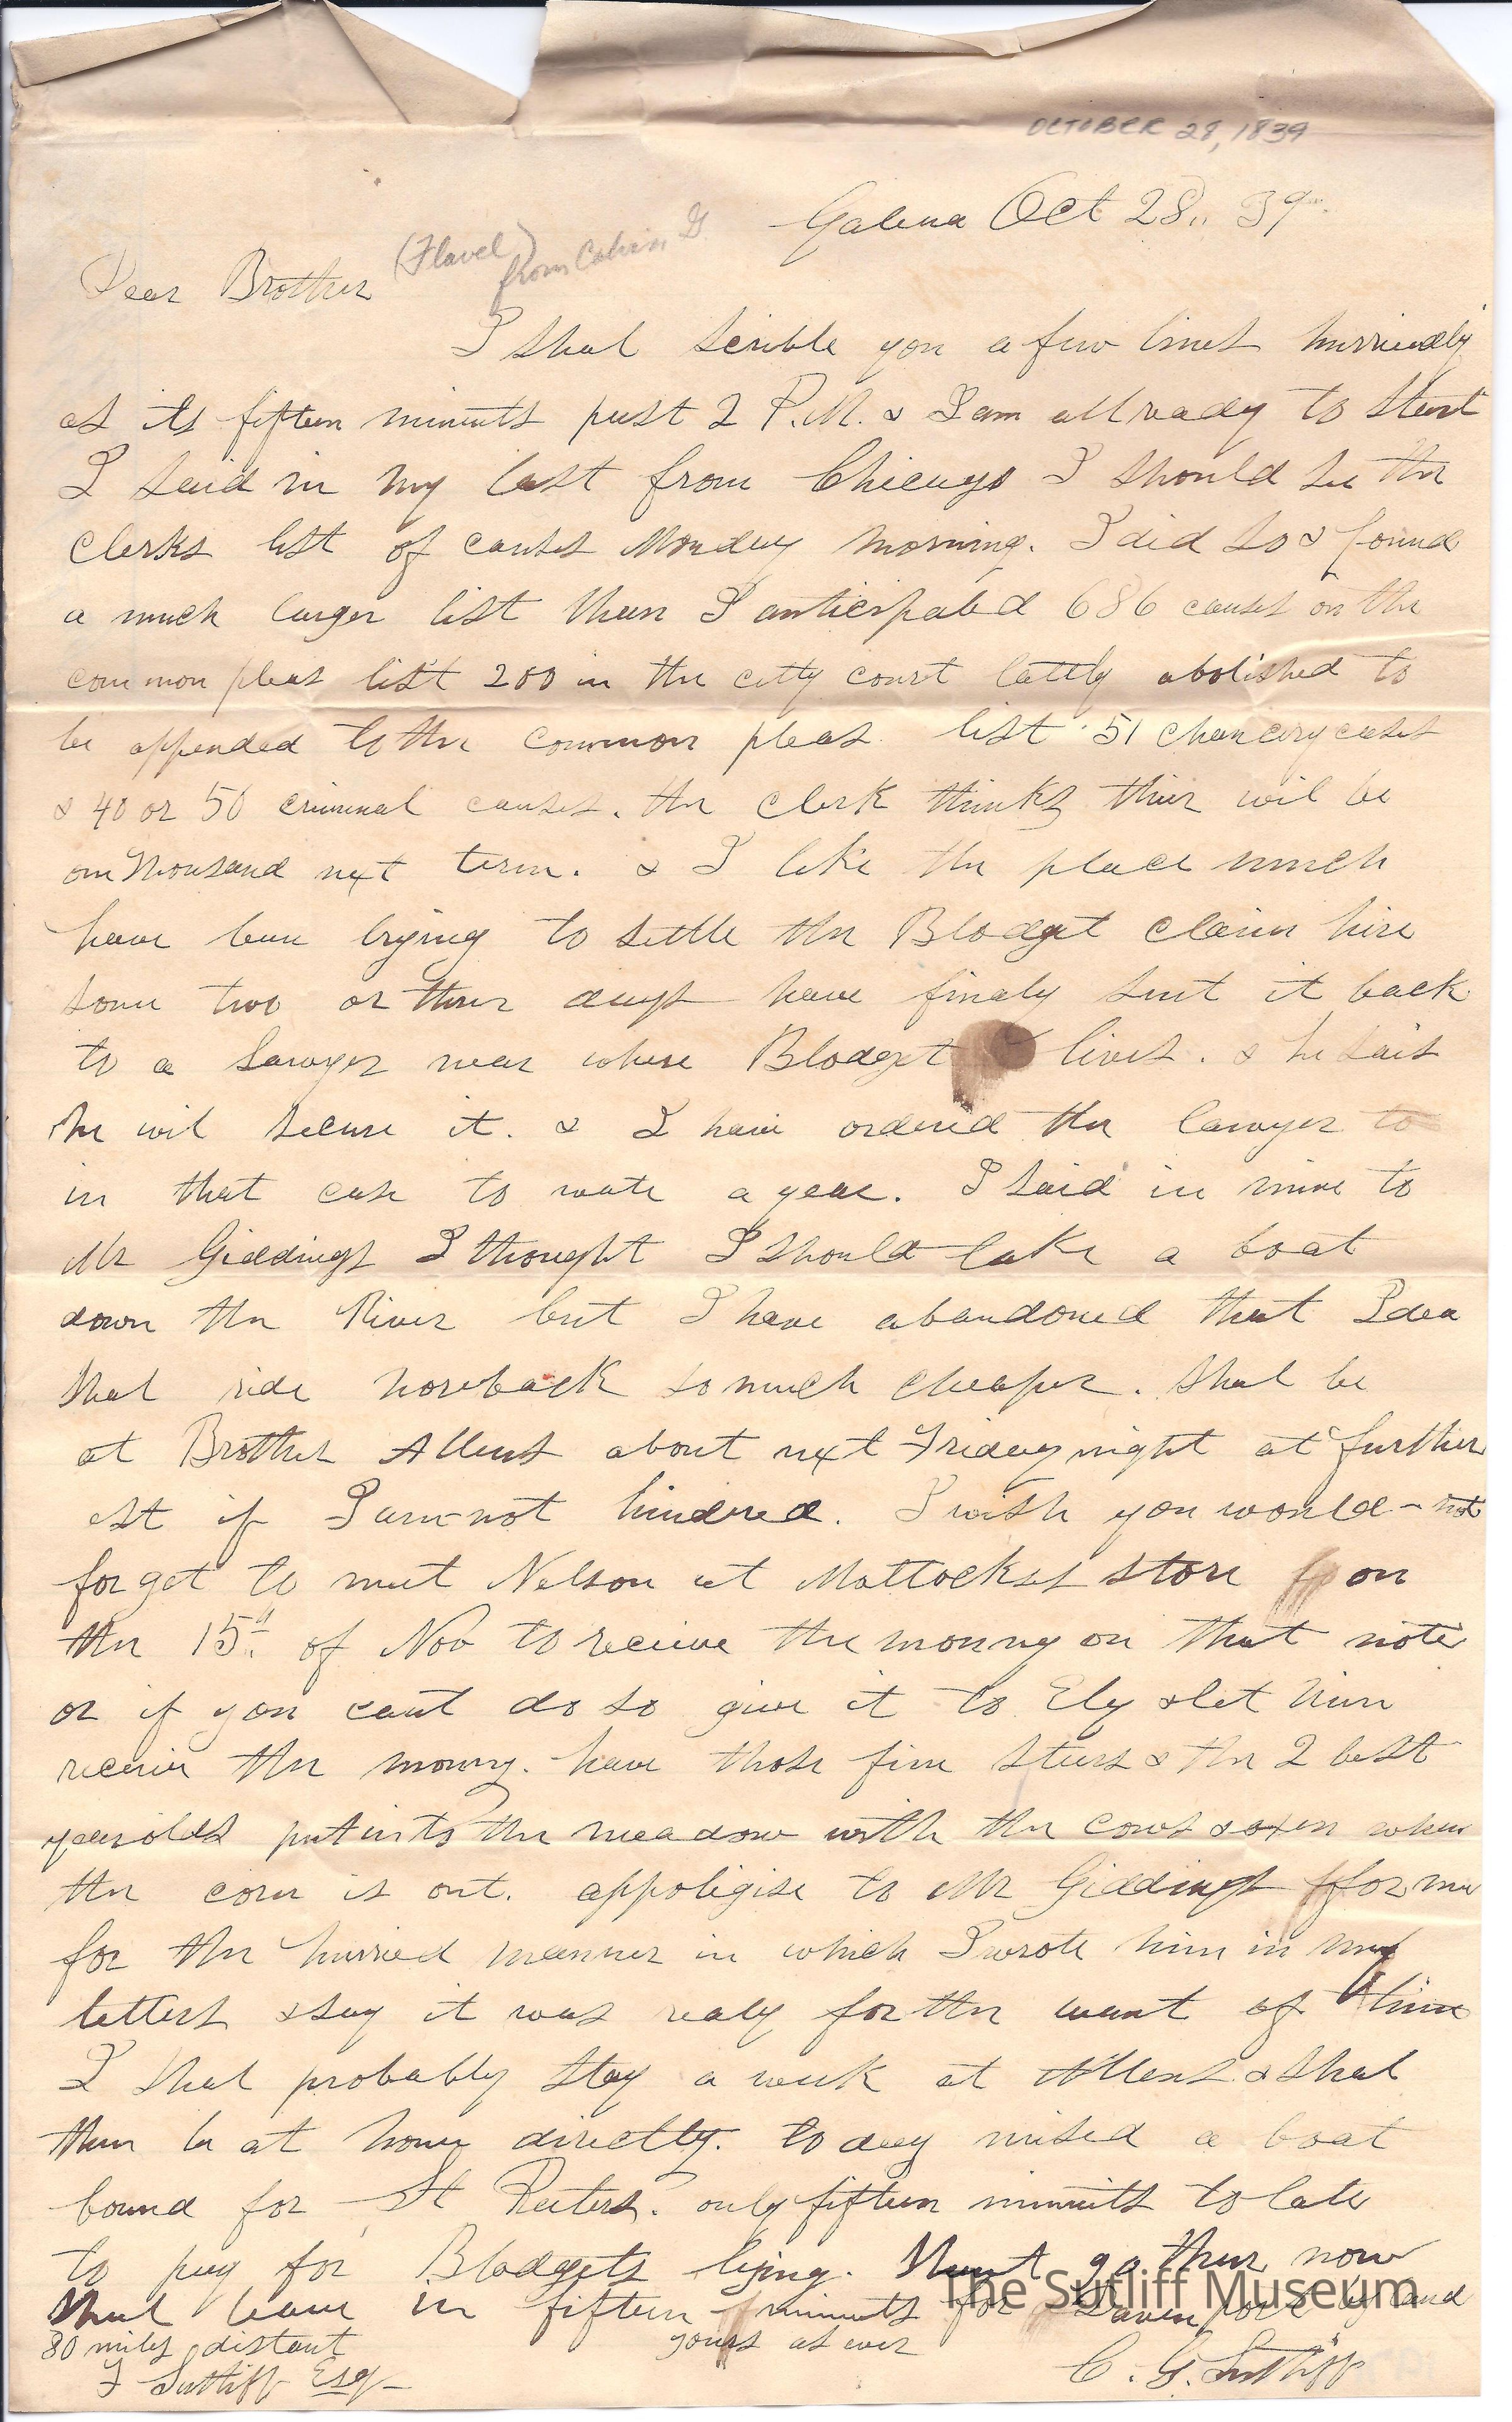 OCTOBER 28, 1839
Galena Oct 28,, 39
Dear Brother (Flavel) from Calvin G.
I shal scrible you a few lines hurriedly
as its fifteen minuts past 2 P.M. & I am all ready to start
I said in my last from Chicago I should see the
clerks list of causes Monday morning. I did so & found
a much larger list than I anticipated 686 causes on the
common pleas list 200 in the citty court lattly abolished to
be appended to the common pleas list 51 chancery cases
& 40 or 50 criminal causes. the clerk thinks thier wil be
one thousand next term. & I like the place much
have been trying to settle the Blodget claim hire
some two or three days have finaly sent it back
to a Lawyer near where Blodget lives. & he sais
he wil secure it. & I have ordered the lawyer to
in that case to wate a year. I said in mine to
Mr Giddings I thought I should take a boat
down the River but I have abandoned that Idea
shal ride horseback so much cheaper. shal be
at Brother Allens about next Friday night at further
est if I am not hindred. I wish you would not
forget to meet Nelson at Mattockses store on
the 15th of Nov to receive the monny on that note
or if you cant do so give it to Ely & let him
receive the monny. have those five steers & the 2 best
yearolds put into the meadow with the cows & oxen when
the corn is out. appoligise to Mr Giddings for me
for the hurried manner in which I wrote him in my
letters & say it was realy for the want of time
I shal probably stay a week at Allens & shal
then be at home directly. to day missed a boat
bound for St Peeters. only fifteen minuts to late
to pay for Blodgets lying. Must go thier now
shal leave in fifteen minuts for Davenport by land
80 miles distant yours as ever
F Sutliff Esq C. G. Sutliff
The Sutliff Museum